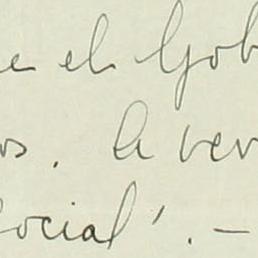 e el Gob
os. A ver
social'. -